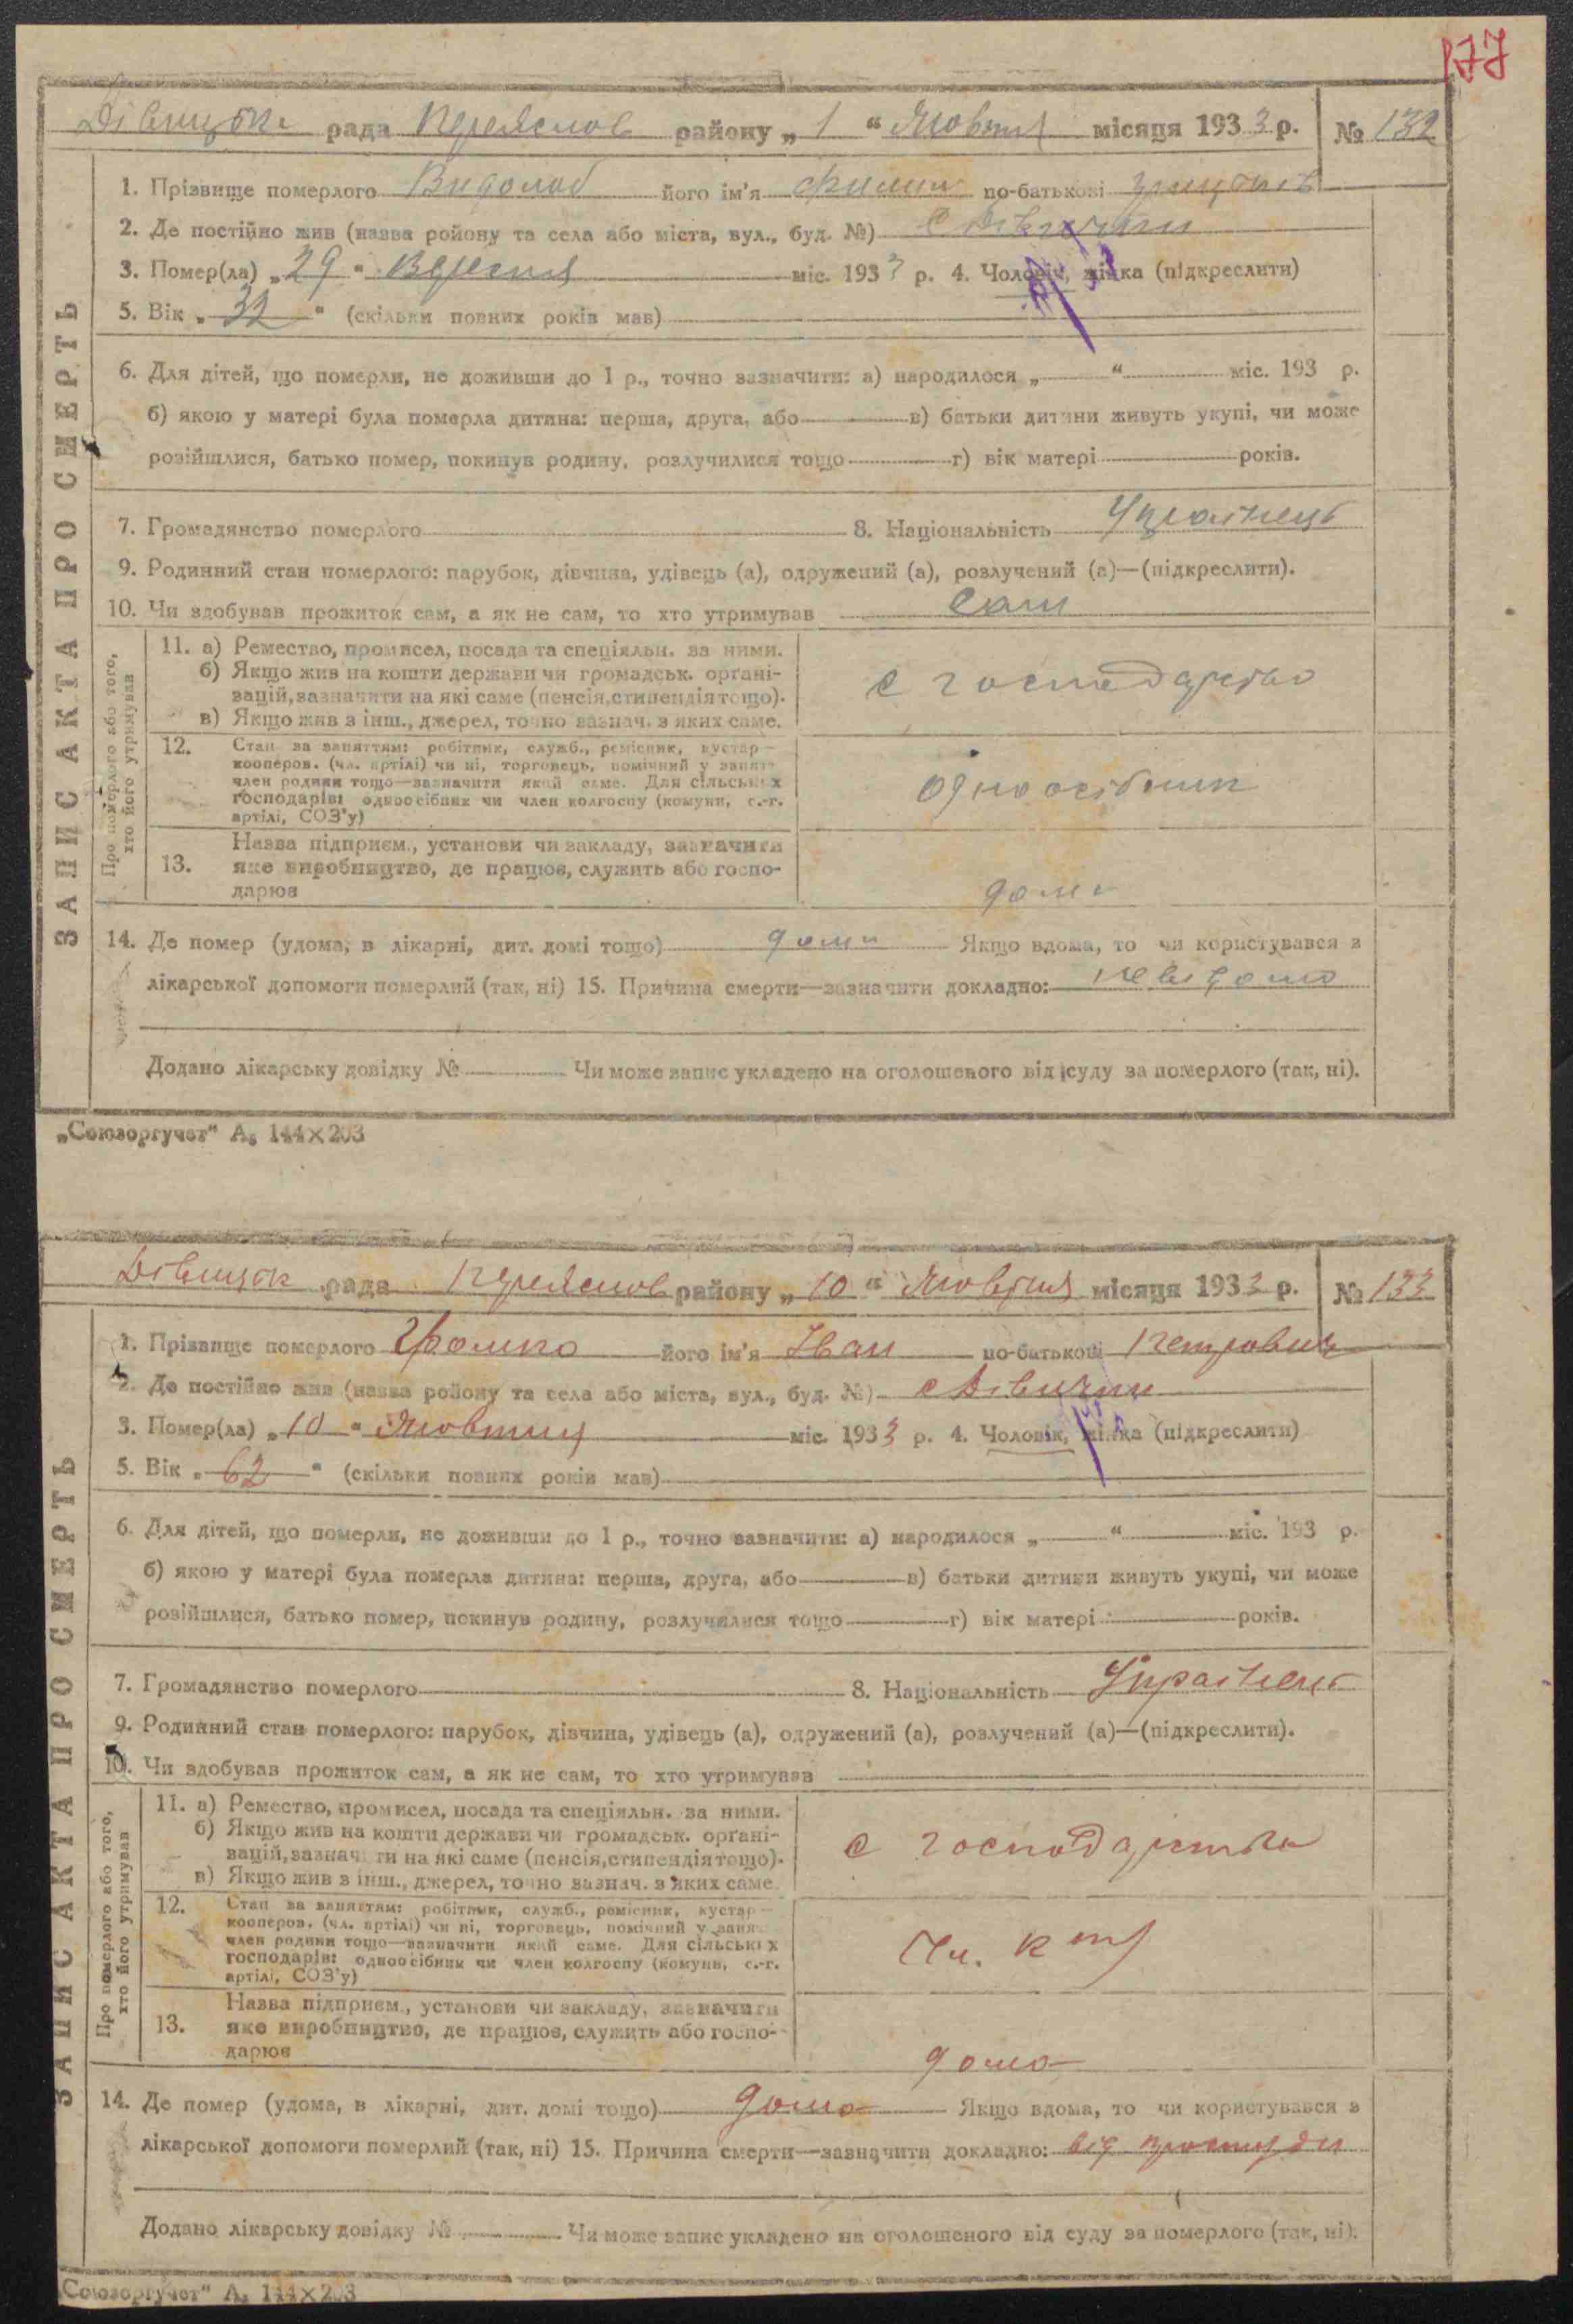 177
рада Переяслов району „ 1 “ Жовтня місяця 1933 р. № 132
1. Прізвище померлого його ім'я Филип по-батькові
2. Де постійно жив (назва ройону та села або міста, вул., буд. №) с Дівички
3. Помер(ла) „ 29 “ Вересня міс. 1933 р. 4. Чоловік, жінка (підкреслити)
5. Вік „ 32 “ (скільки повних років мав)
6. Для дітей, що померли, не доживши до 1 р., точно зазначити: а) народилося „ “ міс. 193 р.
б) якою у матері була померла дитина: перша, друга, або в) батьки дитини живуть укупі, чи може
розійшлися, батько помер, покинув родину, розлучилися тощо г) вік матері років.
7. Громадянство померлого 8. Національність Українець
9. Родинний стан померлого: парубок, дівчина, удівець (а), одружений (а), розлучений (а)—(підкреслити).
10. Чи здобував прожиток сам, а як не сам, то хто утримував Сам
ЗАПИС АКТА ПРО СМЕРТЬ
Про померлого або того, хто його утримував
11. а) Ремество, промисел, посада та спеціяльн. за ними.
б) Якщо жив на кошти держави чи громадськ. орґані-
зацій, зазначити на які саме (пенсія, стипендія тощо).
в) Якщо жив з інш., джерел, точно зазнач. з яких саме.
с господарство
12. Стан за заняттям: робітник, служб., ремісник, кустар—
кооперов. (чл. артілі) чи ні, торговець, помічний у занят.
член родини тощо—зазначити який саме. Для сільських
господарів: одноосібник чи член колгоспу (комуни, с.-г.
артілі, СОЗ'у)
одноосібник
Назва підприєм., установи чи закладу, зазначити
13. яке виробництво, де працює, служить або госпо-
дарює
дома
14. Де помер (удома, в лікарні, дит. домі тощо) дома Якщо вдома, то чи користувався з
лікарської допомоги померлий (так, ні) 15. Причина смерти—зазначити докладно: невідомо
Додано лікарську довідку № Чи може запис укладено на оголошеного від суду за померлого (так, ні).
„Союзоргучет“ А₅ 144×203
рада Переяслов району „ 10 “ Жовтня місяця 1933 р. № 133
1. Прізвище померлого Громко його ім'я Іван по-батькові Петрович
2. Де постійно жив (назва ройону та села або міста, вул., буд. №) с Дівички
3. Помер(ла) „ 10 “ Жовтня міс. 1933 р. 4. Чоловік, жінка (підкреслити)
5. Вік „ 62 “ (скільки повних років мав)
6. Для дітей, що померли, не доживши до 1 р., точно зазначити: а) народилося „ “ міс. 193 р.
б) якою у матері була померла дитина: перша, друга, або в) батьки дитини живуть укупі, чи може
розійшлися, батько помер, покинув родину, розлучилися тощо г) вік матері років.
7. Громадянство померлого 8. Національність Українець
9. Родинний стан померлого: парубок, дівчина, удівець (а), одружений (а), розлучений (а)—(підкреслити).
10. Чи здобував прожиток сам, а як не сам, то хто утримував
ЗАПИС АКТА ПРО СМЕРТЬ
Про померлого або того, хто його утримував
11. а) Ремество, промисел, посада та спеціяльн. за ними.
б) Якщо жив на кошти держави чи громадськ. орґані-
зацій, зазначити на які саме (пенсія, стипендія тощо).
в) Якщо жив з інш., джерел, точно зазнач. з яких саме.
с господарства
12. Стан за заняттям: робітник, служб., ремісник, кустар—
кооперов. (чл. артілі) чи ні, торговець, помічний у занят.
член родини тощо—зазначити який саме. Для сільських
господарів: одноосібник чи член колгоспу (комуни, с.-г.
артілі, СОЗ'у)
Чл.
Назва підприєм., установи чи закладу, зазначити
13. яке виробництво, де працює, служить або госпо-
дарює
дома
14. Де помер (удома, в лікарні, дит. домі тощо) дома Якщо вдома, то чи користувався з
лікарської допомоги померлий (так, ні) 15. Причина смерти—зазначити докладно: від простуди
Додано лікарську довідку № Чи може запис укладено на оголошеного від суду за померлого (так, ні).
„Союзоргучет“ А₅ 144×203